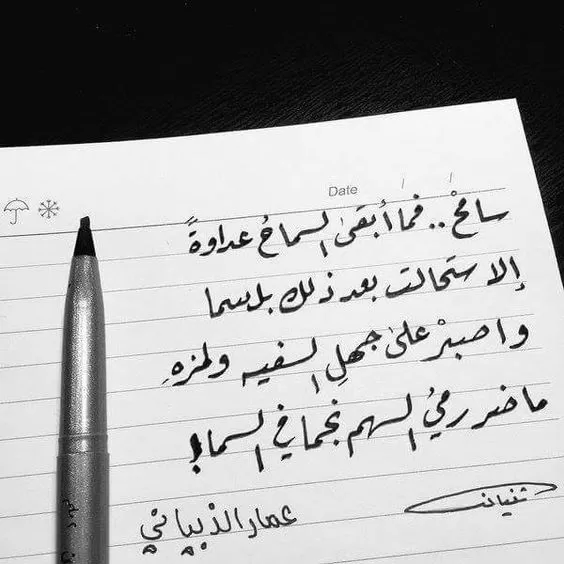 Date / /
سامحْ.. فما أبقىٰ السماحُ عداوةً
إلا ستحالت بعد ذلك بلسما
واصبرْ علىٰ جهلِ السفيه ولمزهِ
ما ضر رميُ السهم نجما في السماء!
عمار الذبياني